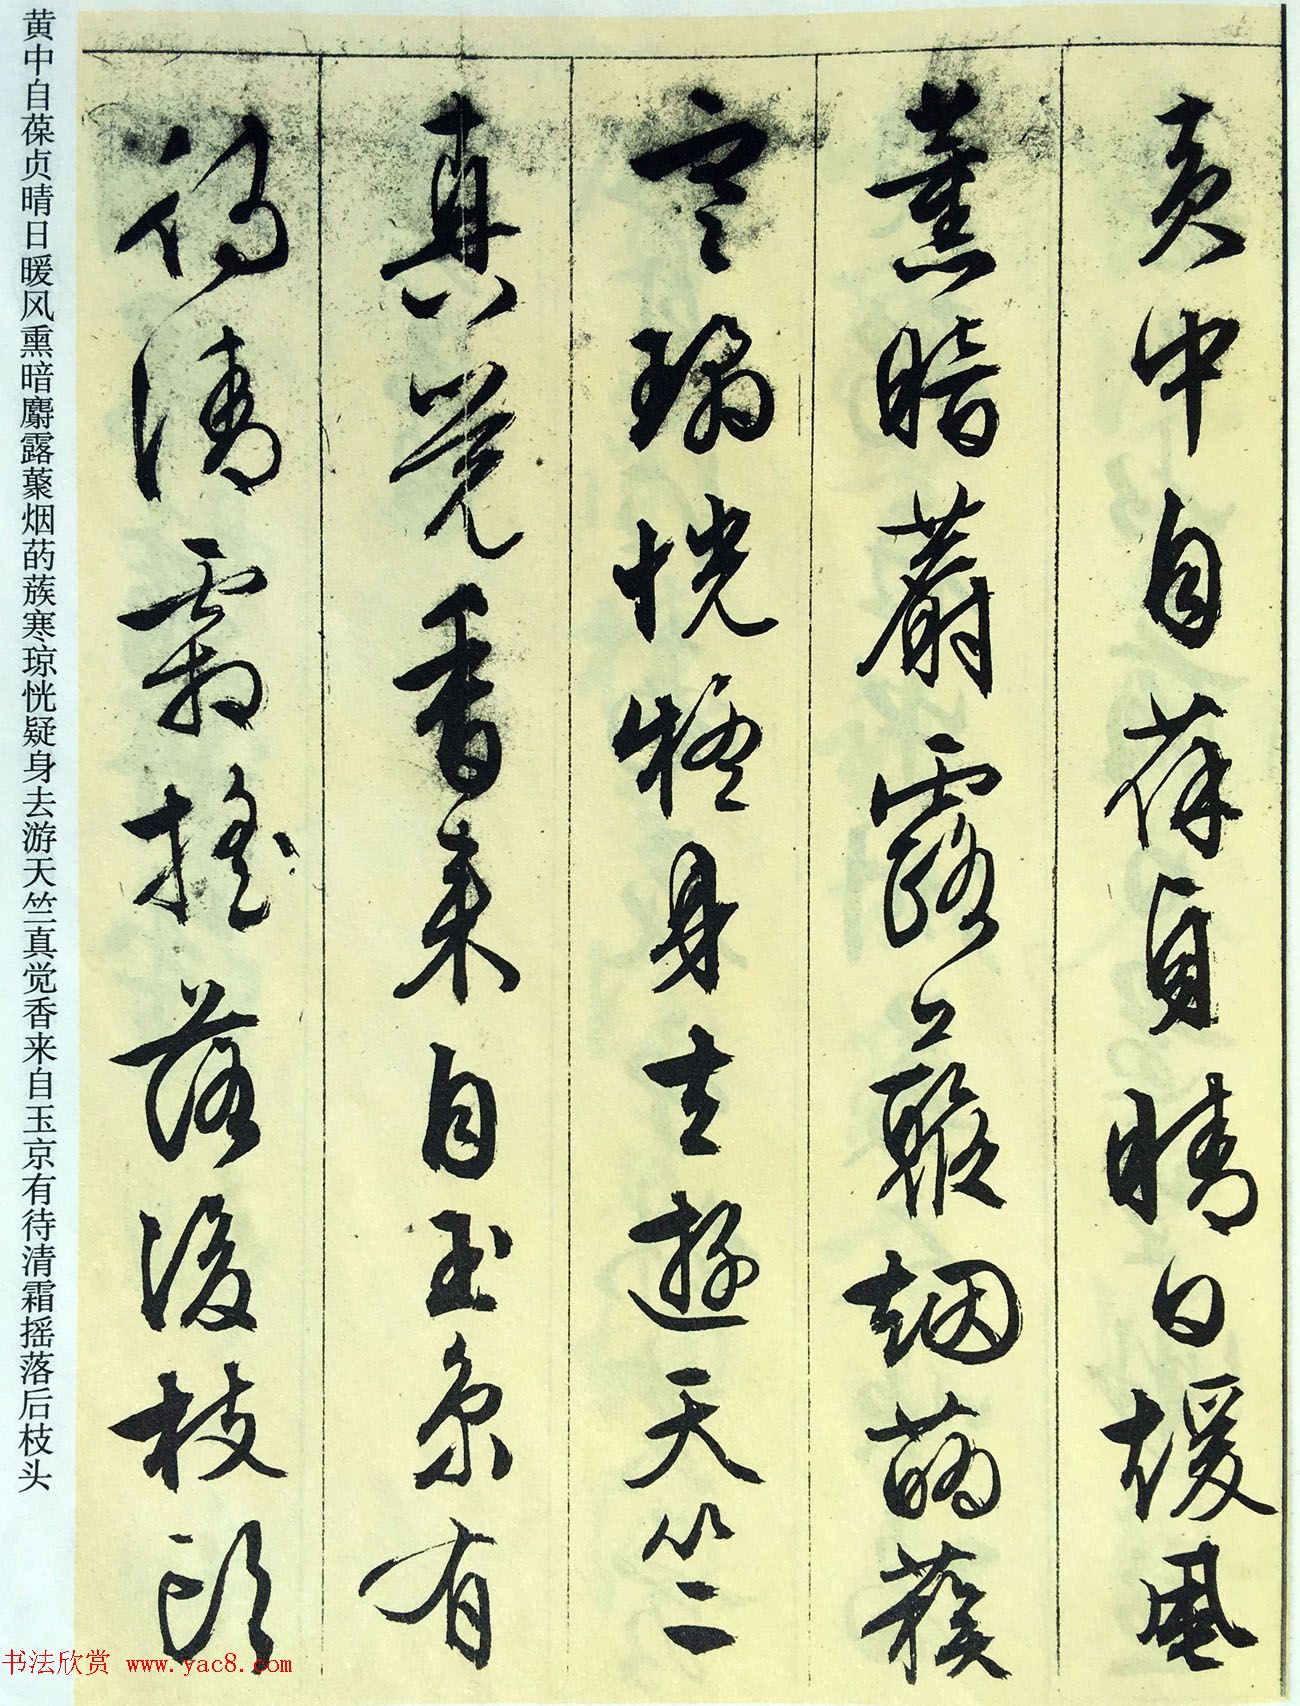 黄中自葆貞晴日煖風
薰暗麝露蘂烟菂蔟
寒瓊恍疑身去遊天竺
真覺香来自玉京有
待清霜摇落後枝頭
黄中自葆贞晴日暖风熏暗麝露蘂烟菂蔟寒琼恍疑身去游天竺真觉香来自玉京有待清霜摇落后枝头
书法欣赏 www.yac8.com